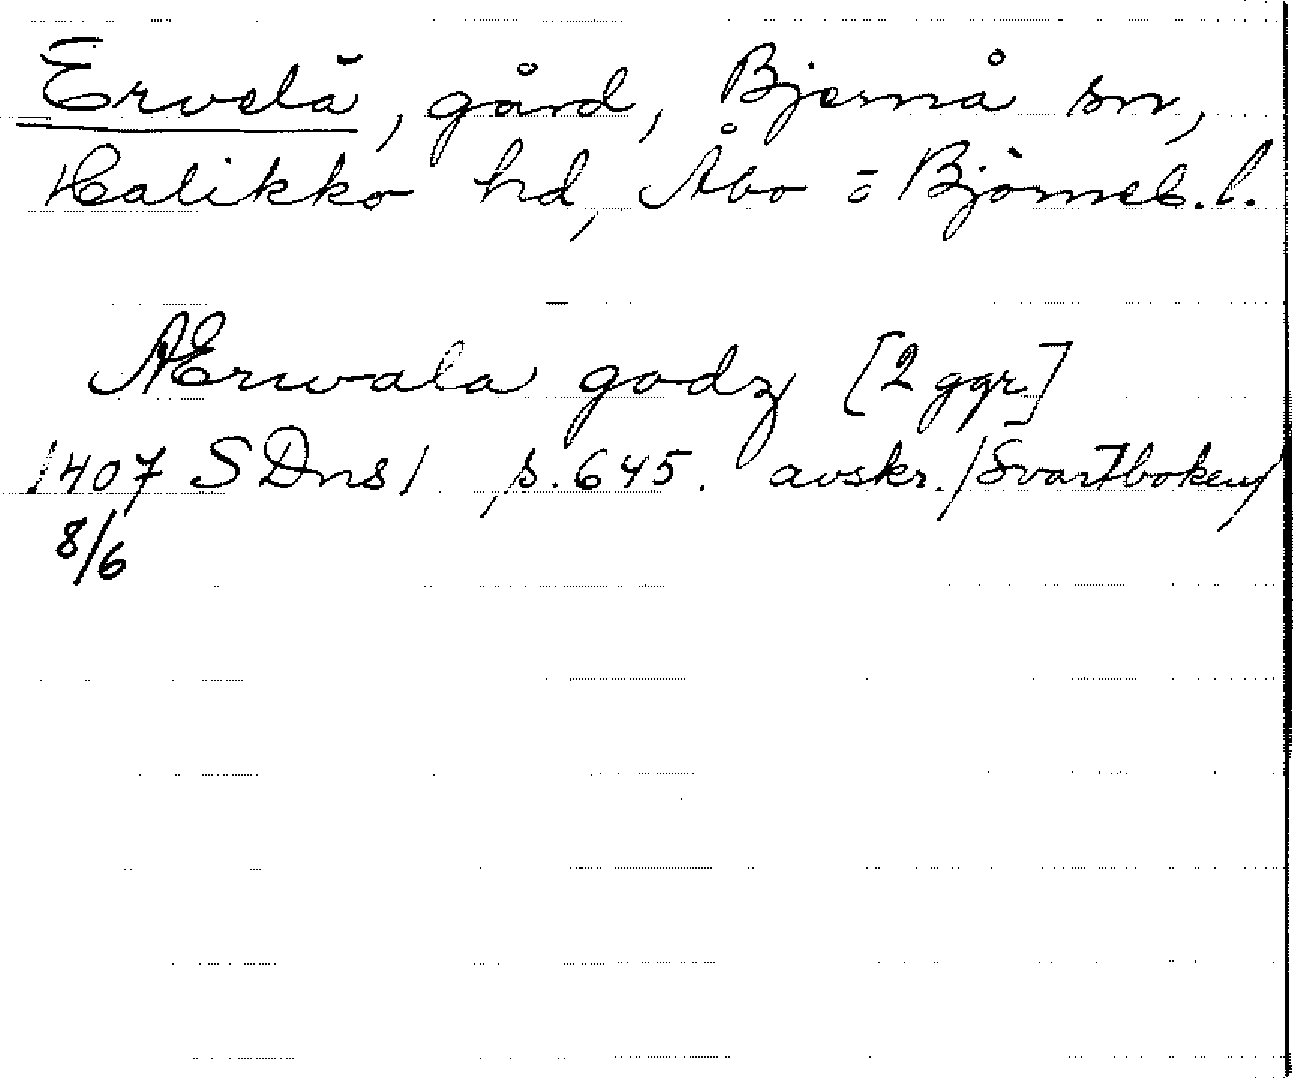 Ervelä, gård, Bjernå sn,
Halikko hd, Åbo = Björneb. l.
AErwala godz [2 ggr]
1407 SDns 1, s. 645. avskr. /Svartboken/
8/6